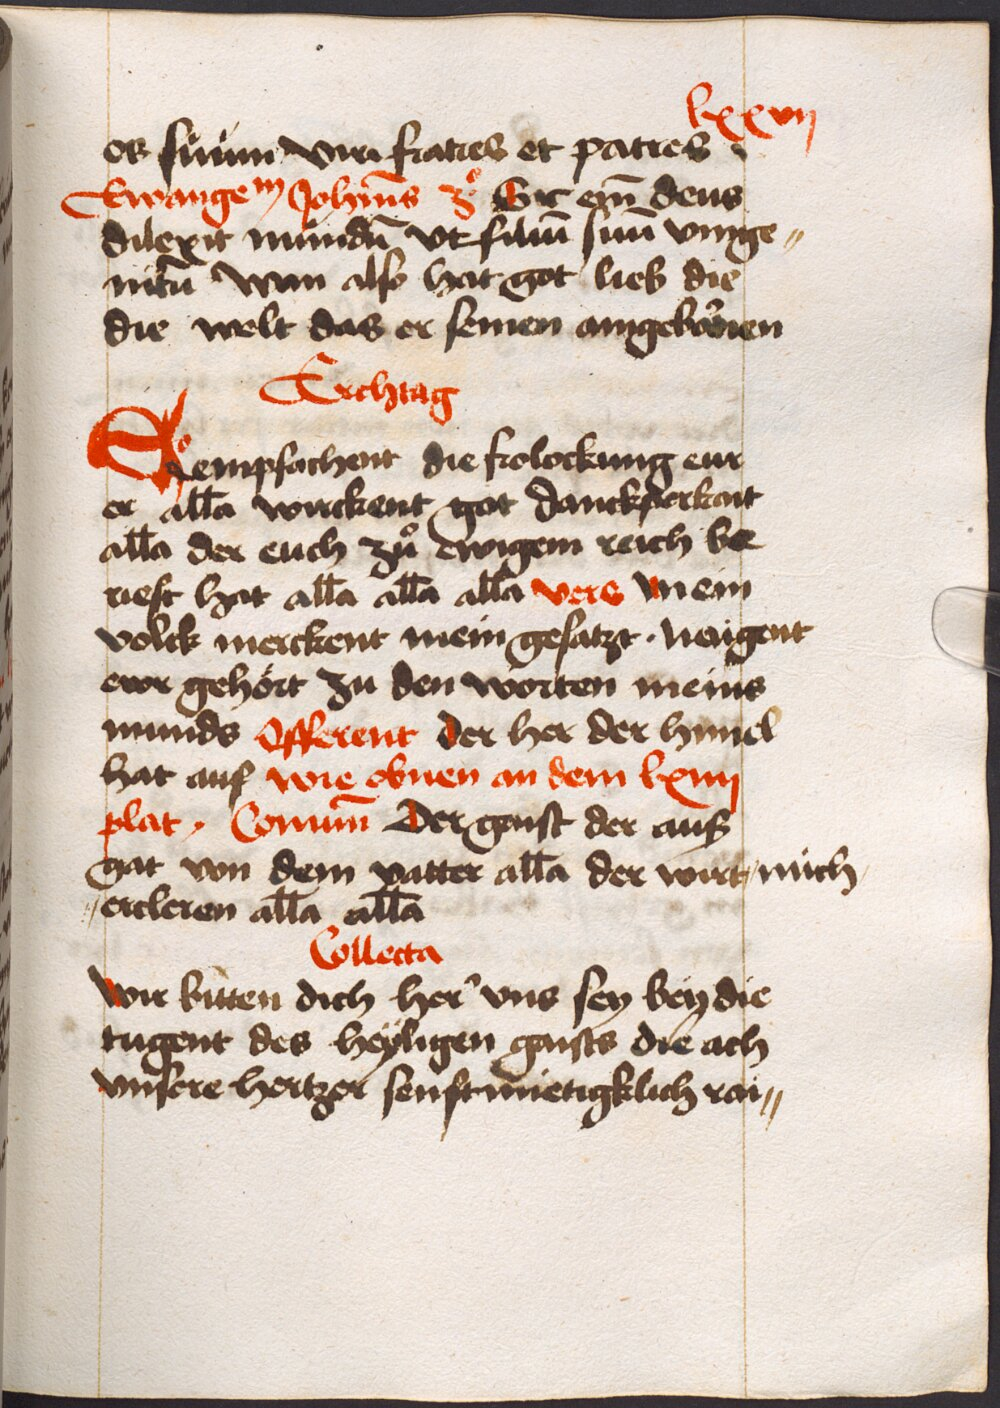 lxxvij
os suum viri fratres et patres
Ewangem Johīs 3º Sic em̄ deus
dilexit mundū vt filiū suū vnige„
nitū Wan also hat got lieb die
die welt das er seinen aingebornen
Erchtag
Empfachent die frolockung eur
er all̄a wirckent got danckperkait
all̄a der euch zů ewigem reich be
rieft hat all̄a all̄a all̄a vers Mein
volck merckent mein gesatzt . Naigent
ewr gehört zu den worten meins
munds Offerent Der her der himel
hat auf wie obnen an dem lxiiij
plat . Comun̄ Der gaist der aus
gat von dem vatter all̄a der wirt mich
ercleren all̄a all̄a
Collecta
Wir bitten dich her vns sey bey die
tugent des heyligen gaists die ach
vnsere hertzer senftmietigklich rai„